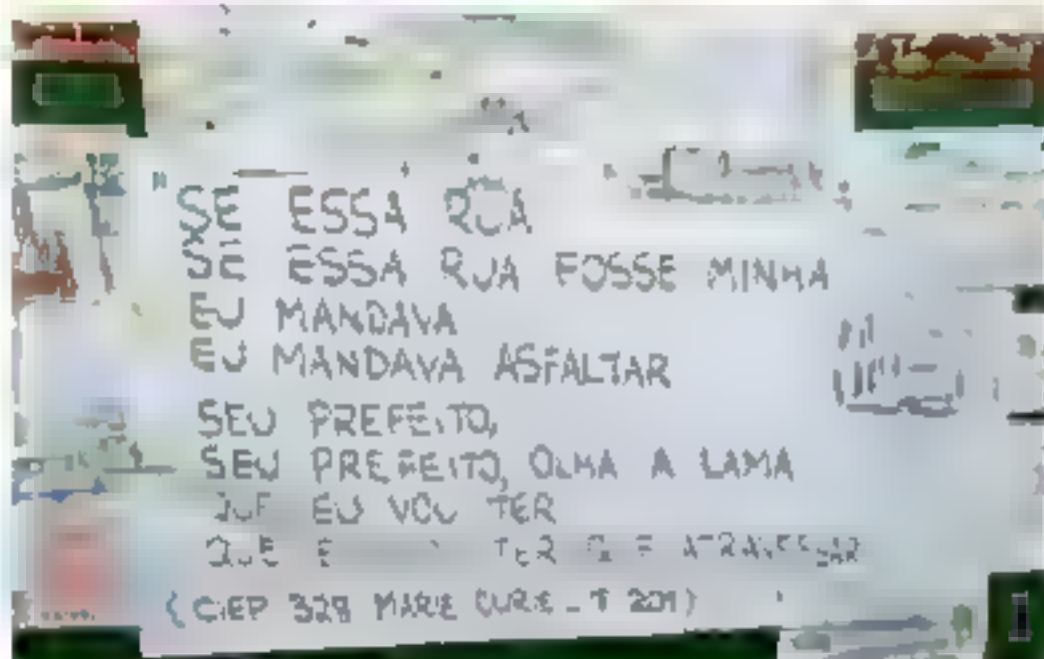 SE ESSA RUA
SE ESSA RUA FOSSE MINHA
EU MANDAVA
EU MANDAVA ASFALTAR
SEU PREFEITO,
SEU PREFEITO, OLHA A LAMA
QUE EU VOU TER
QUE E TER QUE ATRAVESSAR
(CIEP 328 MARIE CURIE - T 201)